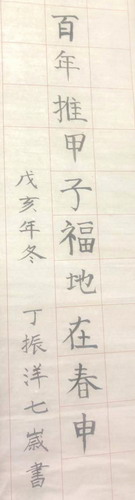 百年推甲子福地在春申
戊亥年冬 丁振洋七嵗書